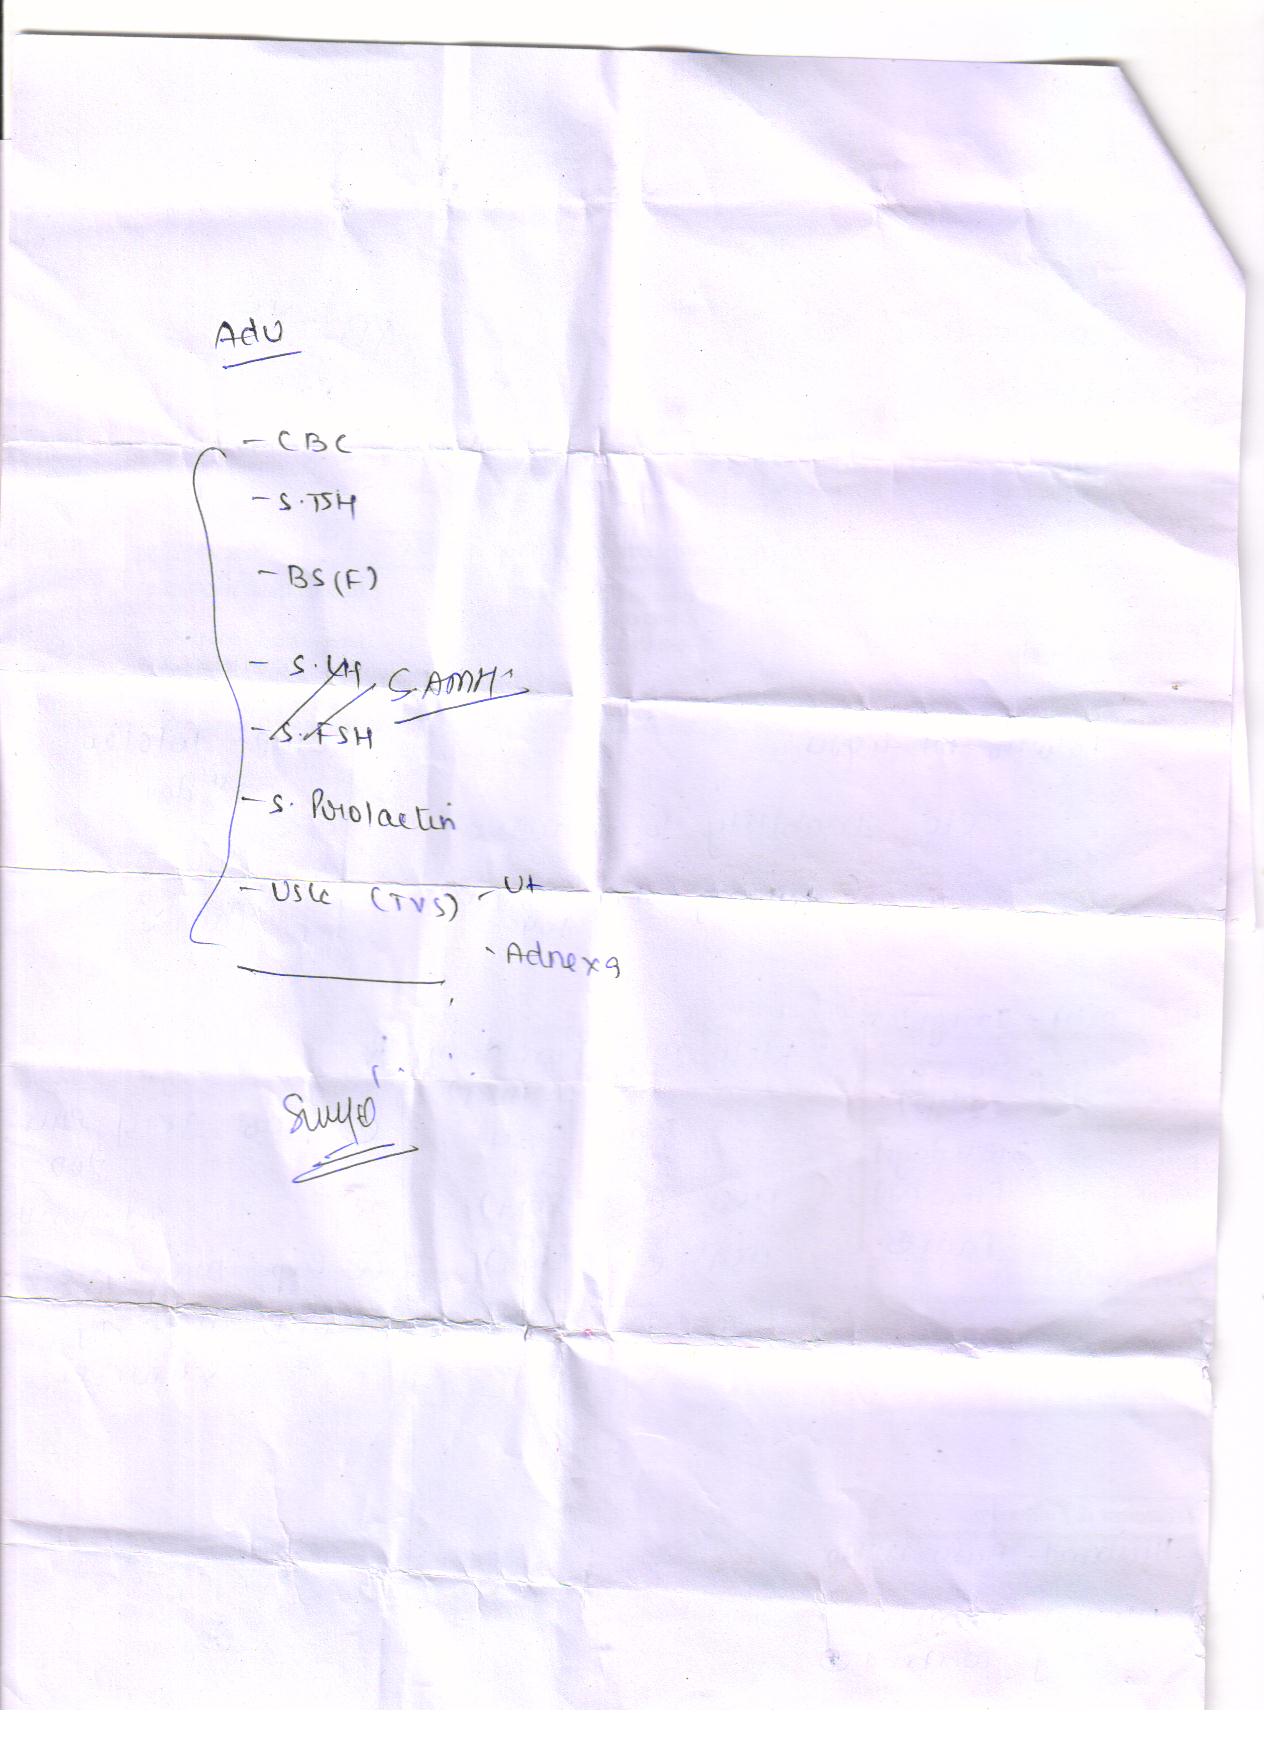 Adv
- CBC
- S.TSH
- BS(F)
- S.LH
S.AMH
- S.FSH
- S. Prolactin
- USG (TVS) - Ut
- Adnexa